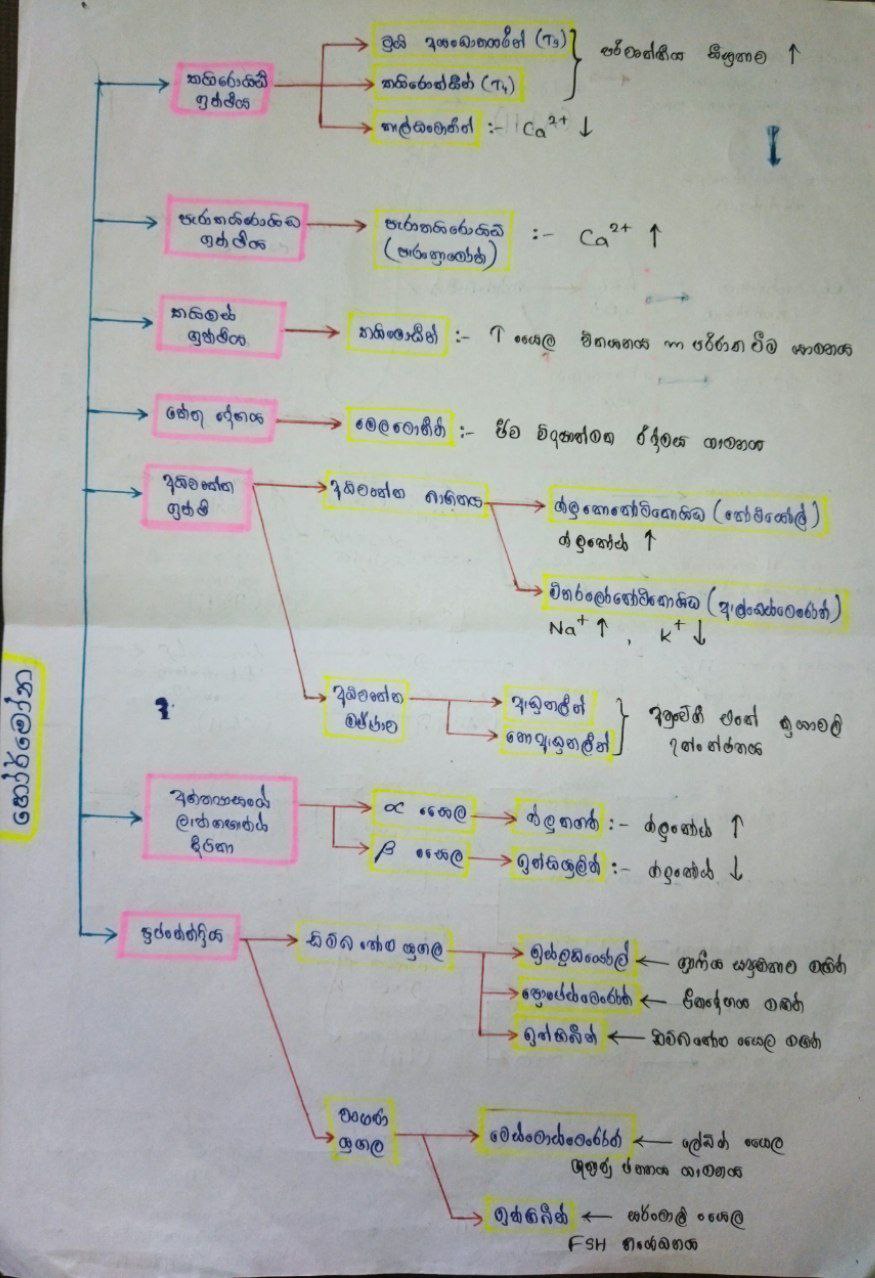 හෝර්මෝන
තයිරොයිඩ්
ග්‍රන්ථිය
ට්‍රයි අයඩොතයරීන් (T₃)
තයිරොක්සීන් (T₄)
පරිවෘත්තීය සීඝ්‍රතාව ↑
කැල්සිටොනින් :- Ca²⁺ ↓
පැරාතයිරොයිඩ
ග්‍රන්ථිය
පැරාතයිරොයිඩ්
(පැරාතෝමෝන්)
:- Ca²⁺ ↑
තයිමස්
ග්‍රන්ථිය
තයිමොසින් :- T සෛල විභේදනය හා පරිණත වීම යාමනය
කේතු දේහය
මෙලටොනින් :- ජීව විද්‍යාත්මක රිද්මය යාමනය
අධිවෘක්ක
ග්‍රන්ථි
අධිවෘක්ක බාහිකය
ග්ලූකොකෝටිකොයිඩ (කෝටිසෝල්)
ග්ලූකෝස් ↑
මිනරලොකෝටිකොයිඩ (ඇල්ඩොස්ටෙරෝන්)
Na⁺ ↑ , K⁺ ↓
අධිවෘක්ක
මජ්ජාව
ඇඩ්‍රිනලීන්
නොඇඩ්‍රිනලීන්
අනුවේගී ක්‍රියාවලි
උත්තේජනය
අග්න්‍යාසයේ
ලැන්ගහැන්ස්
දීපිකා
α සෛල
ග්ලූකගන් :- ග්ලූකෝස් ↑
β සෛල
ඉන්සියුලින් :- ග්ලූකෝස් ↓
ප්‍රජනේන්ද්‍රිය
ඩිම්බ කෝෂ යුගල
ඉස්ට්‍රඩියෝල් ← ග්‍රාෆීය සූනිකාව මඟින්
ප්‍රොජෙස්ටෙරෝන් ← පීතදේහය මඟින්
ඉන්හිබින් ← ඩිම්බකෝෂ සෛල මඟින්
වෘෂණ
යුගල
ටෙස්ටොස්ටෙරෝන් ← ලේඩිග් සෛල
ශුක්‍රාණු ජනනය යාමනය
ඉන්හිබින් ← සර්ටෝලි සෛල
FSH නිශේධනය